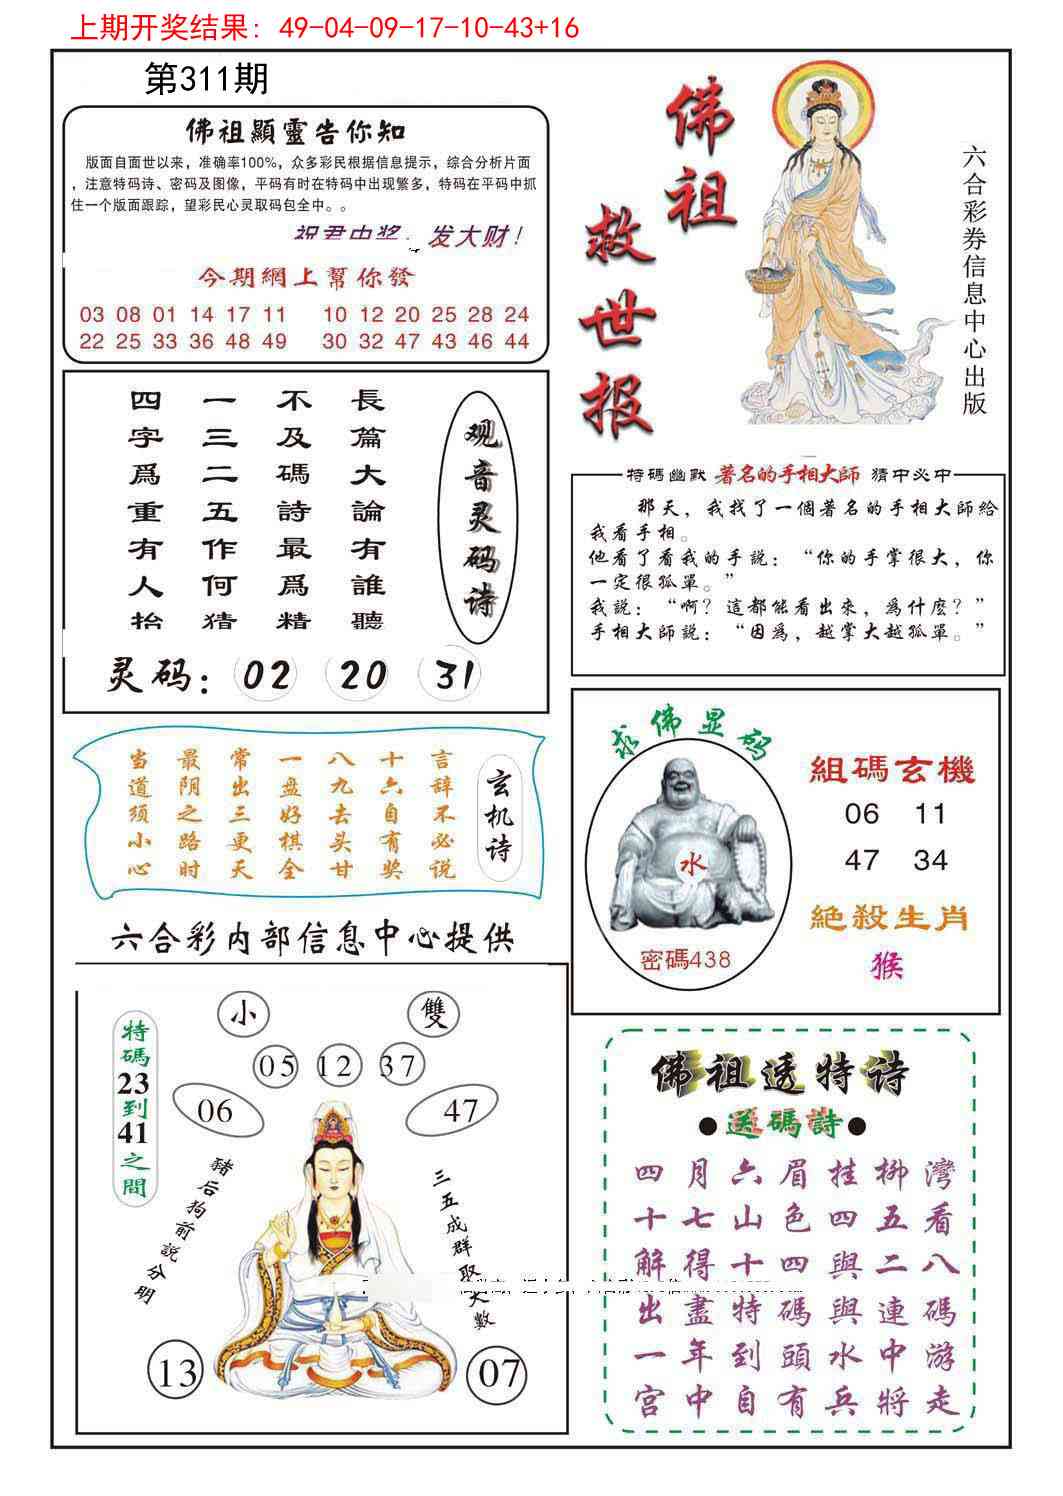 上期开奖结果: 49-04-09-17-10-43+16
第311期
佛祖顯靈告你知
版面自面世以来，准确率100%，众多彩民根据信息提示，综合分析片面
，注意特码诗、密码及图像，平码有时在特码中出现繁多，特码在平码中抓
住一个版面跟踪，望彩民心灵取码包全中。。
祝君中奖，发大财！
今期網上幫你發
03 08 01 14 17 11 10 12 20 25 28 24
22 25 33 36 48 49 30 32 47 43 46 44
佛祖
救世报
六合彩券信息中心出版
观音灵码诗
長篇大論有誰聽
不及碼詩最爲精
一三二五作何猜
四字爲重有人抬
灵码: 02 20 31
特碼幽默 著名的手相大師 猜中必中
那天，我找了一個著名的手相大師給
我看手相。
他看了看我的手説：“你的手掌很大，你
一定很孤單。”
我説：“啊？這都能看出來，爲什麽？”
手相大師説：“因爲，越掌大越孤單。”
玄机诗
言辞不必说
十六自有奖
八九去头甘
一盘好棋全
常出三更天
最阴之路时
当道须小心
求佛显码
水
密碼438
組碼玄機
06 11
47 34
絕殺生肖
猴
六合彩内部信息中心提供
小 雙
05 12 37
06 47
特碼23到41之間
豬后狗前説分明
三五成群取大數
13 07
佛祖透特诗
●送碼詩●
四月六眉挂柳灣
十七山色四五看
解得十四與二八
出盡特碼與連碼
一年到頭水中游
宫中自有兵將走